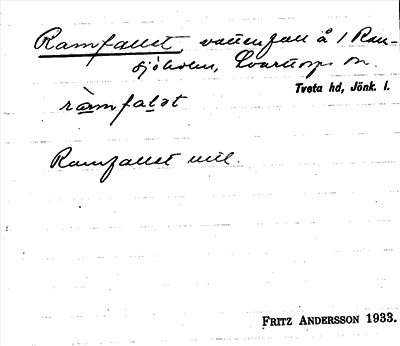 Ramfallet, vattenfall å 1 Ram-
sjöholm, Svarttorps sn.
Tveta hd, Jönk. l.
ràmfalət
Ramfallet mtl.
FRITZ ANDERSSON 1933.